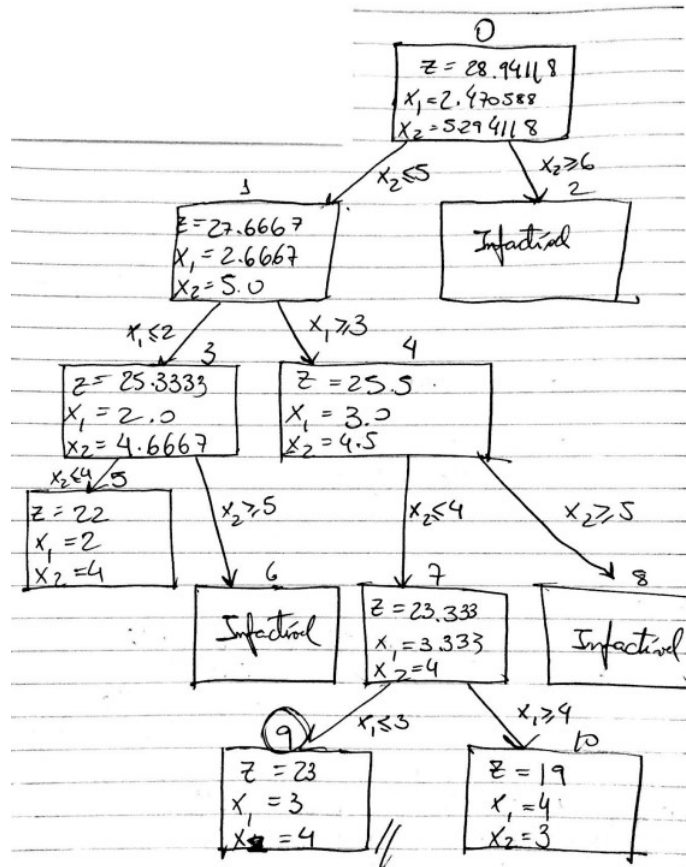 0
Z = 28.94118
X₁ = 2.470588
X₂ = 5.294118
X₂ ≤ 5
X₂ ≥ 6
1
2
Z = 27.6667
X₁ = 2.6667
X₂ = 5.0
Infactível
X₁ ≤ 2
X₁ ≥ 3
3
4
Z = 25.3333
X₁ = 2.0
X₂ = 4.6667
Z = 25.5
X₁ = 3.0
X₂ = 4.5
X₂ ≤ 4
5
X₂ ≥ 5
X₂ ≤ 4
X₂ ≥ 5
Z = 22
X₁ = 2
X₂ = 4
6
7
8
Infactível
Z = 23.333
X₁ = 3.333
X₂ = 4
Infactível
X₁ ≤ 3
X₁ ≥ 4
9
10
Z = 23
X₁ = 3
X₂ = 4
Z = 19
X₁ = 4
X₂ = 3